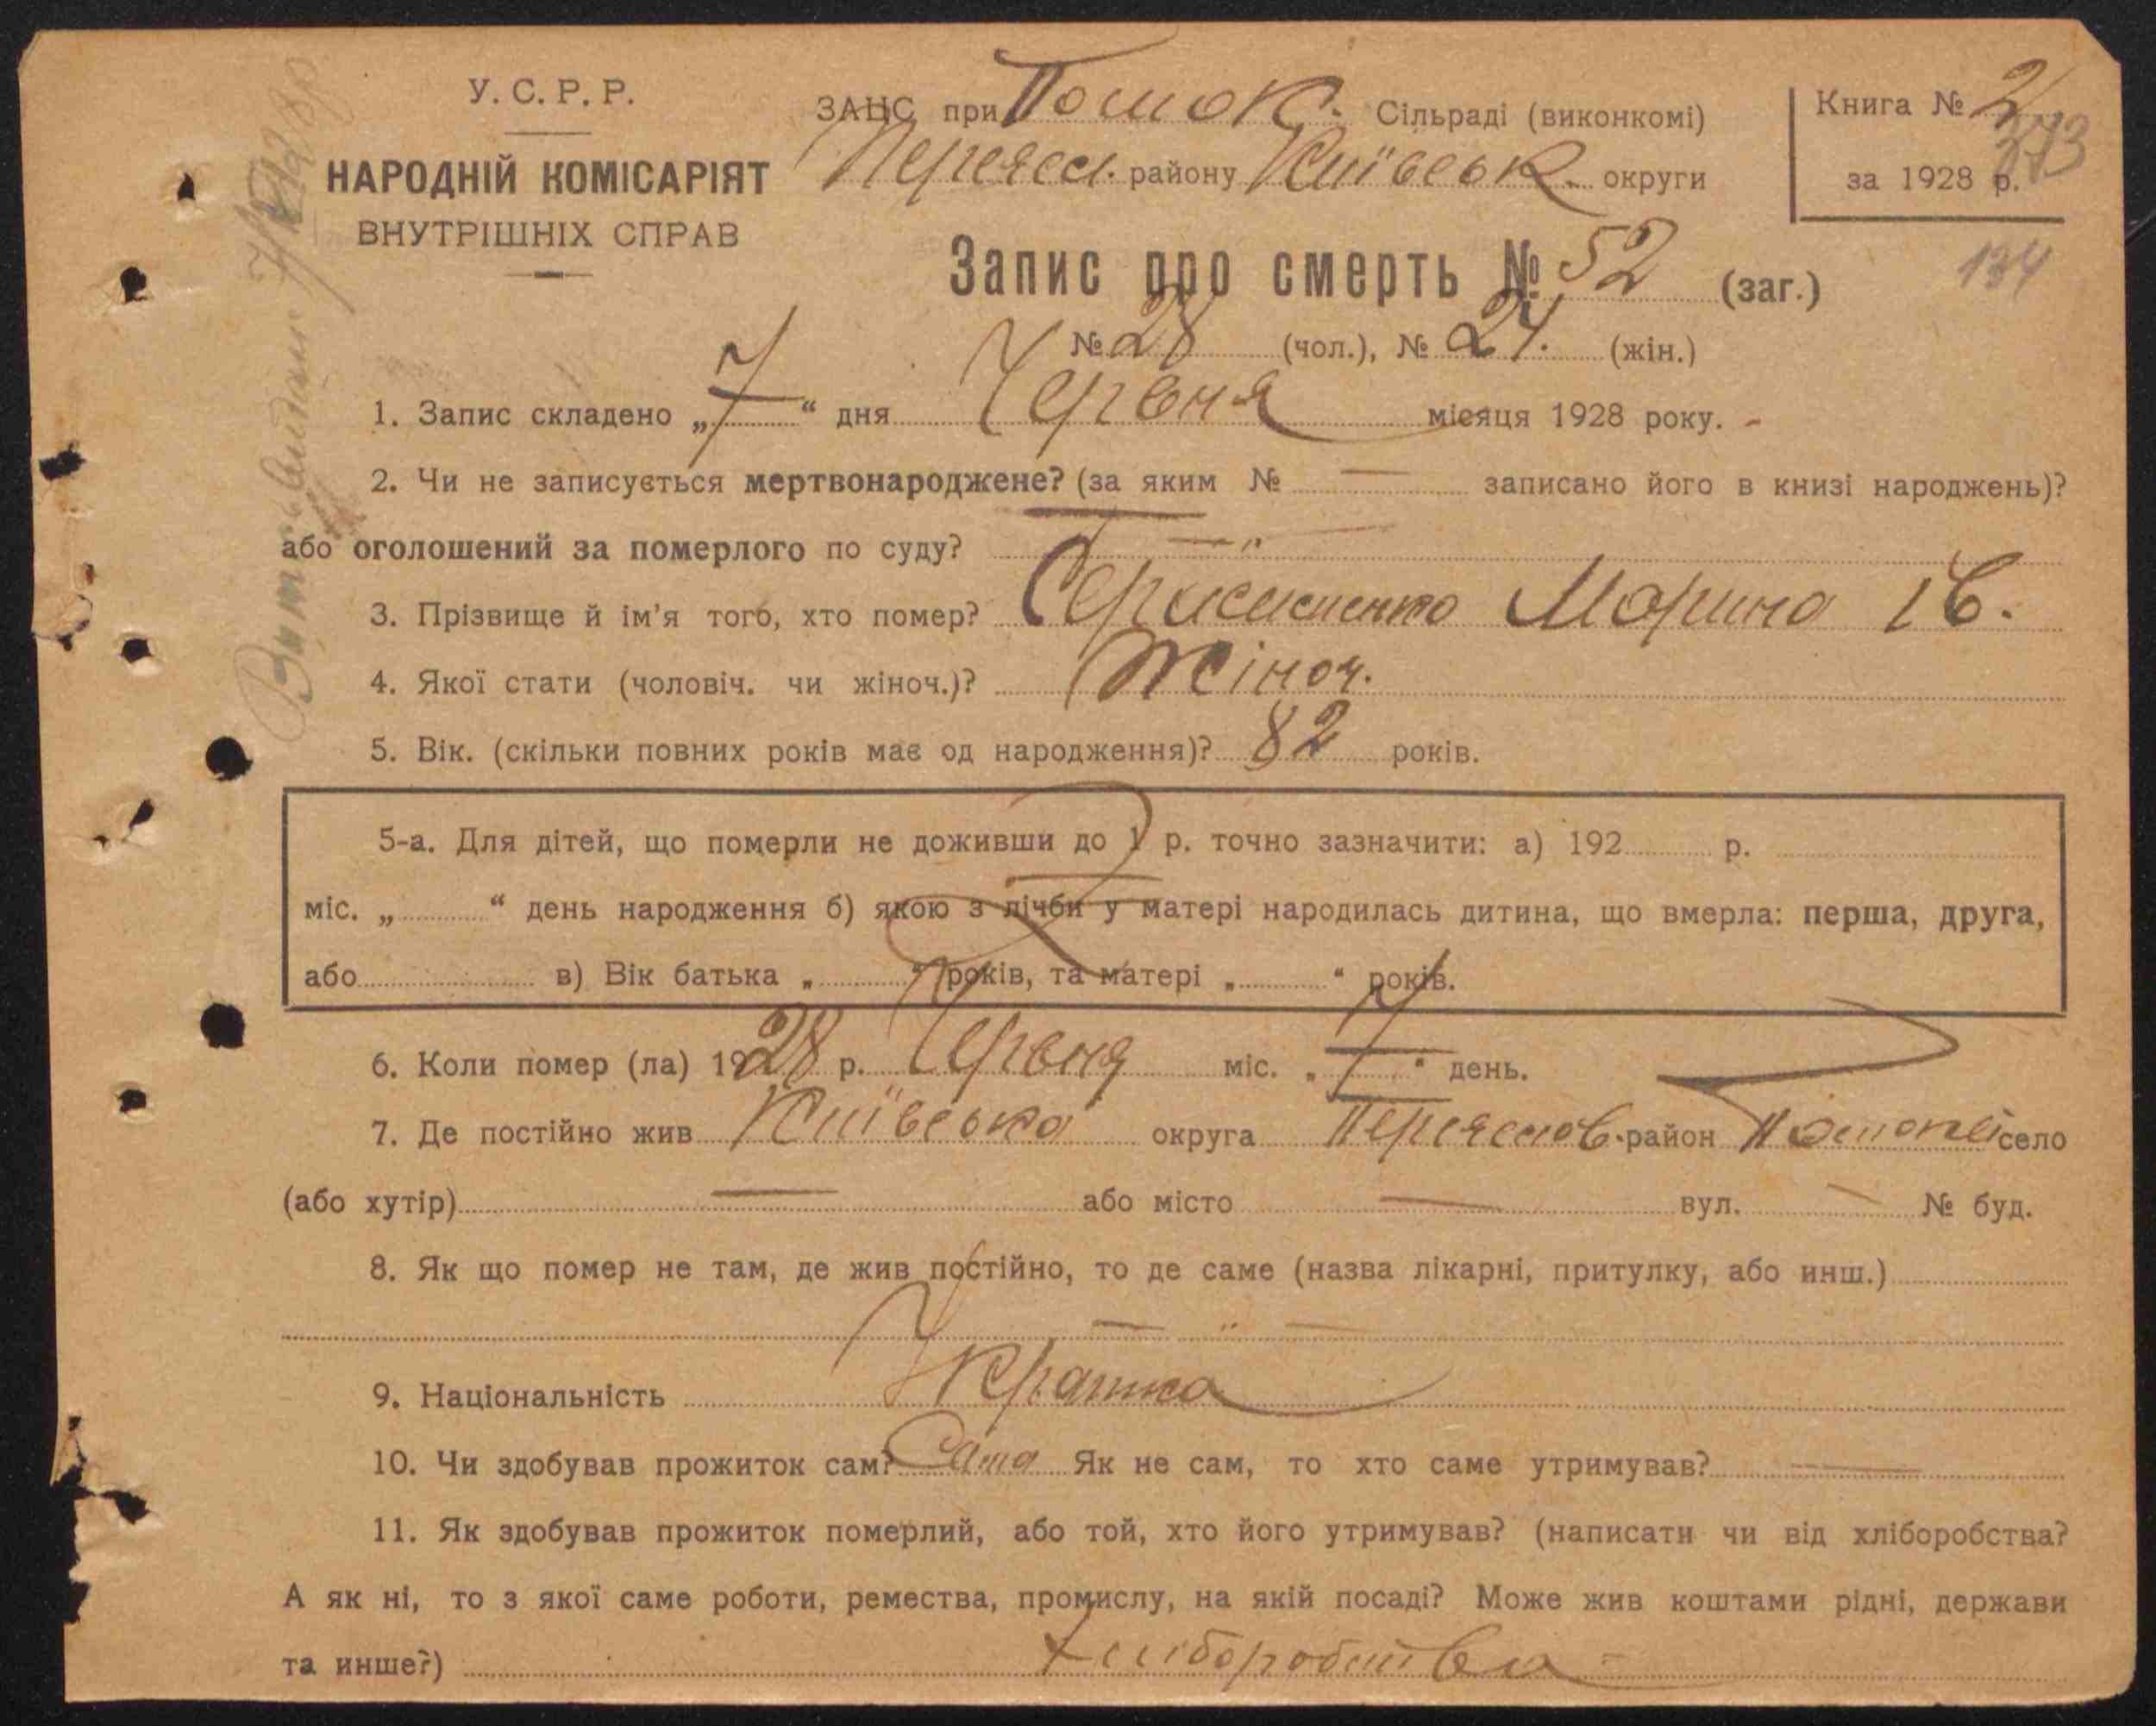 У. С. Р. Р.
НАРОДНІЙ КОМІСАРІЯТ
ВНУТРІШНІХ СПРАВ
ЗАЦС при Поток. Сільраді (виконкомі)
Переясл. району Київськ. округи
Книга № 2
373
за 1928 р.
134
Запис про смерть № 52 (заг.)
№ 28 (чол.), № 24. (жін.)
1. Запис складено „7“ дня Червня місяця 1928 року.
2. Чи не записується мертвонароджене? (за яким № — записано його в книзі народжень)?
або оголошений за померлого по суду? — „
3. Прізвище й ім'я того, хто помер? Марина Ів.
4. Якої стати (чоловіч. чи жіноч.)? Жіноч.
5. Вік. (скільки повних років має од народження)? 82 років.
5-а. Для дітей, що померли не доживши до 1 р. точно зазначити: а) 192 р.
міс. „ “ день народження б) якою з лічби у матері народилась дитина, що вмерла: перша, друга,
або в) Вік батька „ “ років, та матері „ “ років.
6. Коли помер (ла) 1928 р. Червня міс. „7“ день.
7. Де постійно жив Київська округа Переяслов. район село
(або хутір) — або місто — вул. — № буд.
8. Як що помер не там, де жив постійно, то де саме (назва лікарні, притулку, або инш.)
— „ —
9. Національність Українка
10. Чи здобував прожиток сам? Сама Як не сам, то хто саме утримував? —
11. Як здобував прожиток померлий, або той, хто його утримував? (написати чи від хліборобства?
А як ні, то з якої саме роботи, ремества, промислу, на якій посаді? Може жив коштами рідні, держави
та инше?) Хліборобства